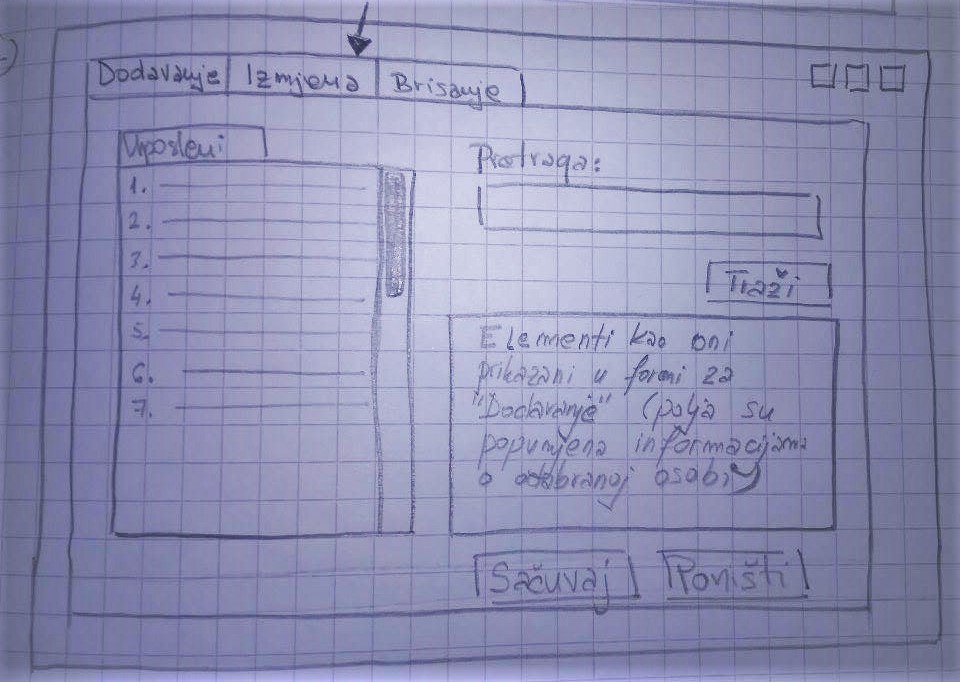 Dodavanje Izmjena Brisanje
Uposleni
Pretraga:
1.
2.
3.
4.
5.
6.
7.
Traži
Elementi kao oni
prikazani u formi za
"Dodavanje" (polja su
popunjena informacijama
o odabranoj osobi)
Sačuvaj Poništi